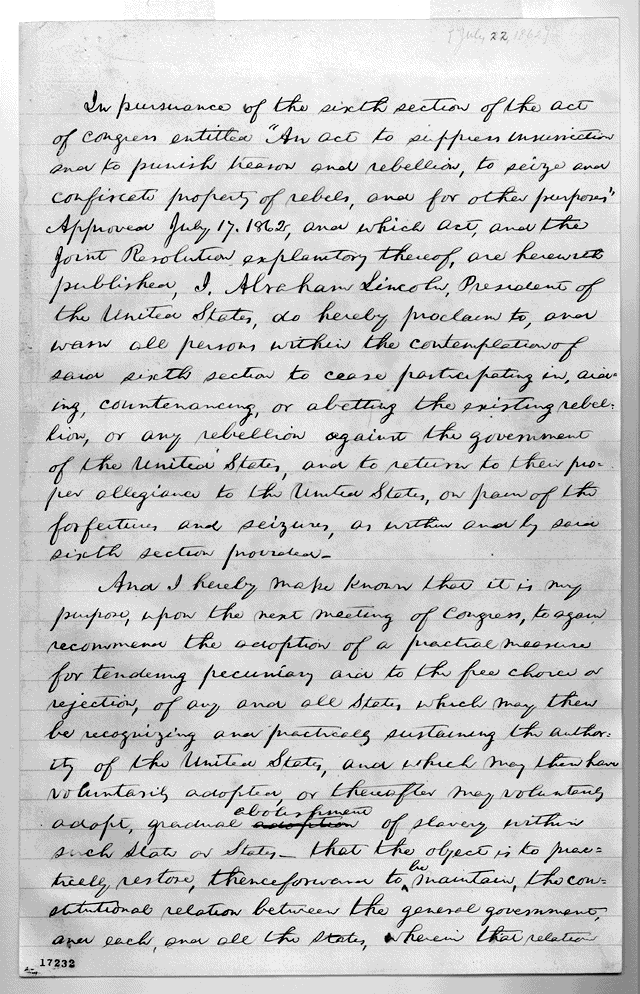 [July 22, 1862]
In pursuance of the sixth section of the act
of congress entitled "An act to suppress insurrection
and to punish treason and rebellion, to seize and
confiscate property of rebels, and for other purposes"
Approved July 17. 1862, and which act, and the
Joint Resolution explanatory thereof, are herewith
published, I, Abraham Lincoln, President of
the United States, do hereby proclaim to, and
warn all persons within the contemplation of
said sixth section to cease participating in, aid-
ing, countenancing, or abetting the existing rebel-
lion, or any rebellion against the government
of the United States, and to return to their pro-
per allegiance to the United States, on pain of the
forfeitures and seizures, as within and by said
sixth section provided—
And I hereby make known that it is my
purpose, upon the next meeting of Congress, to again
recommend the adoption of a practical measure
for tendering pecuniary aid to the free choice or
rejection, of any and all States which may then
be recognizing and practically sustaining the author-
ity of the United States, and which may then have
voluntarily adopted, or thereafter may voluntarily
abolishment
adopt, gradual adoption of slavery within
such State or States— that the object is to prac-
tically restore, thenceforward to be maintain, the con-
stitutional relation between the general government,
and each, and all the states, wherein that relation
17232